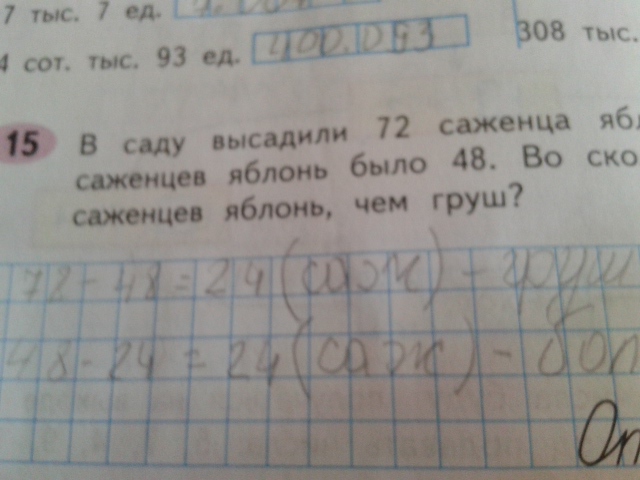 7 тыс. 7 ед.
4 сот. тыс. 93 ед. 400.093
308 тыс.
15 В саду высадили 72 саженца ябл
саженцев яблонь было 48. Во ско
саженцев яблонь, чем груш?
72-48=24(саж)-груш
48-24=24(саж)-
От